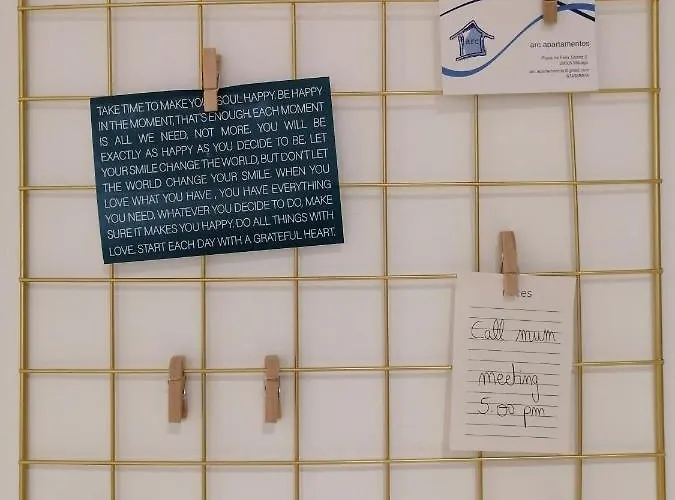 arc
arc apartamentos
TAKE TIME TO MAKE YOUR SOUL HAPPY. BE HAPPY
IN THE MOMENT, THAT'S ENOUGH. EACH MOMENT
IS ALL WE NEED, NOT MORE. YOU WILL BE
EXACTLY AS HAPPY AS YOU DECIDE TO BE. LET
YOUR SMILE CHANGE THE WORLD, BUT DON'T LET
THE WORLD CHANGE YOUR SMILE. WHEN YOU
LOVE WHAT YOU HAVE , YOU HAVE EVERYTHING
YOU NEED. WHATEVER YOU DECIDE TO DO, MAKE
SURE IT MAKES YOU HAPPY. DO ALL THINGS WITH
LOVE. START EACH DAY WITH A GRATEFUL HEART.
Call mum
meeting
5:00 pm